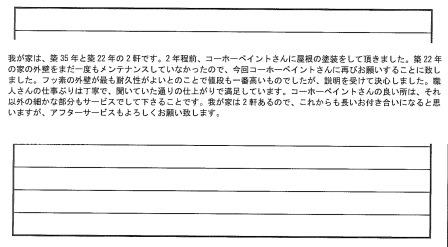 我が家は、築35年と築22年の2軒です。2年程前、コーホーペイントさんに屋根の塗装をして頂きました。築22年
の家の外壁をまだ一度もメンテナンスしていなかったので、今回コーホーペイントさんに再びお願いすることに致し
ました。フッ素の外壁が最も耐久性がよいとのことで値段も一番高いものでしたが、説明を受けて決心しました。職
人さんの仕事ぶりは丁寧で、聞いていた通りの仕上がりで満足しています。コーホーペイントさんの良い所は、それ
以外の細かな部分もサービスでして下さることです。我が家は2軒あるので、これからも長いお付き合いになると思
いますが、アフターサービスもよろしくお願い致します。